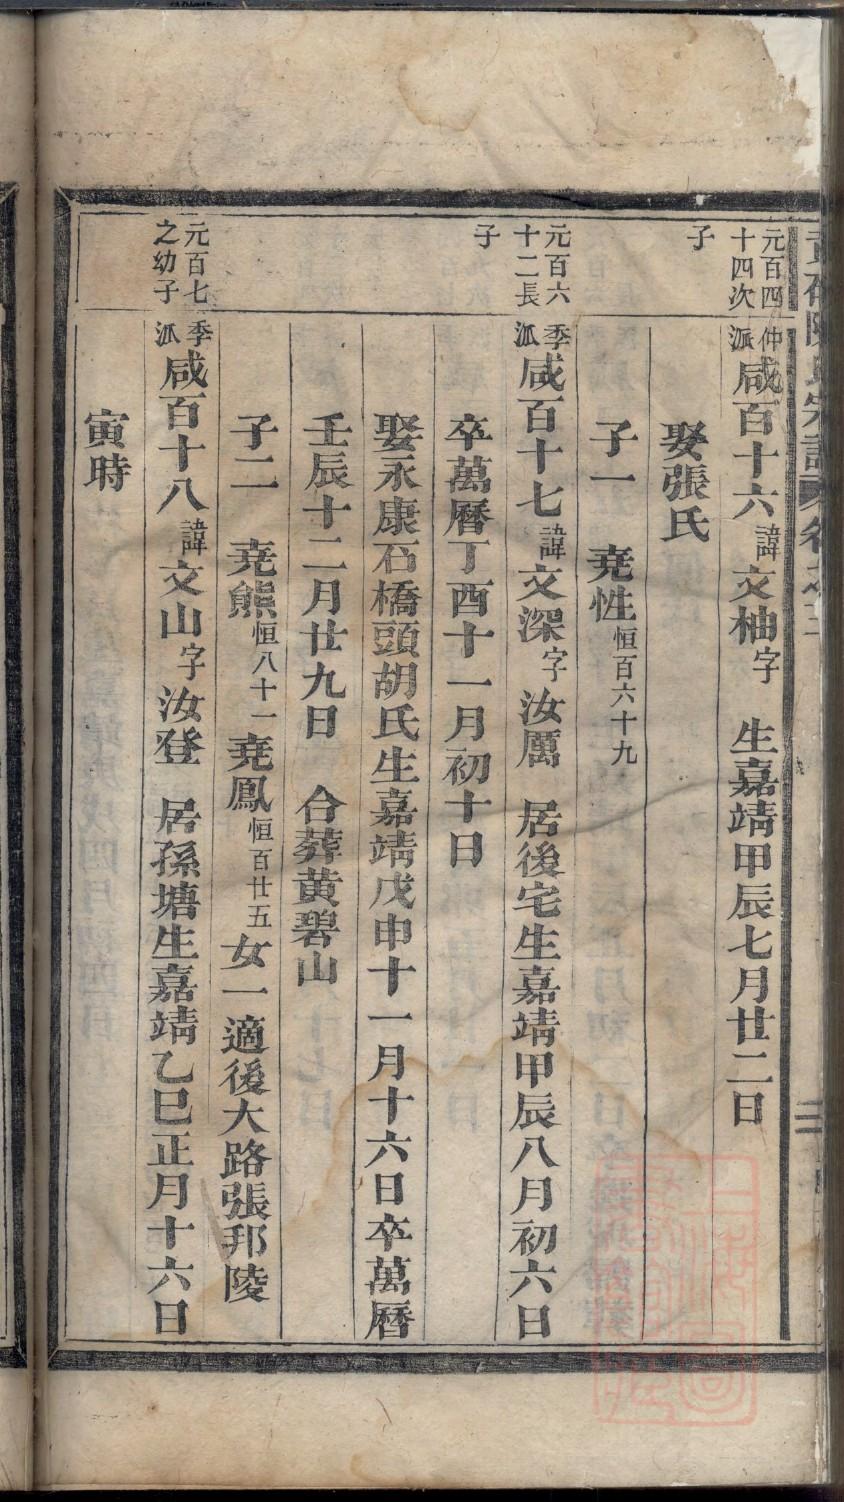 元百四十四次子
仲派咸百十六諱文柚字　生嘉靖甲辰七月廿二日
娶張氏
子一　堯性恒百六十九
元百六十二長子
季派咸百十七諱文深字汝厲　居後宅生嘉靖甲辰八月初六日
卒萬曆丁酉十一月初十日
娶永康石橋頭胡氏生嘉靖戊申十一月十六日卒萬曆
壬辰十二月廿九日　合葬黄碧山
子二　堯熊恒八十一堯鳳恒百廿五女一適後大路張邦陵
元百七之幼子
季派咸百十八諱文山字汝登　居孫塘生嘉靖乙巳正月十六日
寅時